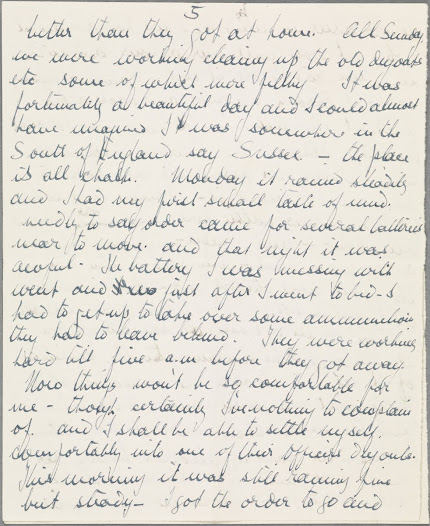 5
better than they got at home. All Sunday
we were working cleaning up the old dugouts
etc some of which were filthy It was
fortunately a beautiful day and I could almost
have imagined I was somewhere in the
South of England say Sussex – the place
is all chalk. Monday it rained steadily
and I had my first small taste of mud.
needly to say order came for several batteries
near to move. and that night it was
awful. The battery I was messing with
went and just after I went to bed – I
had to get up to take over some ammunition
they had to leave behind. They were working
hard till five a.m before they got away.
Now things won't be so comfortable for
me – though certainly I've nothing to complain
of. and I shall be able to settle myself
comfortably into one of their officers dugouts.
This morning it was still raining fine
but steady – I got the order to go and